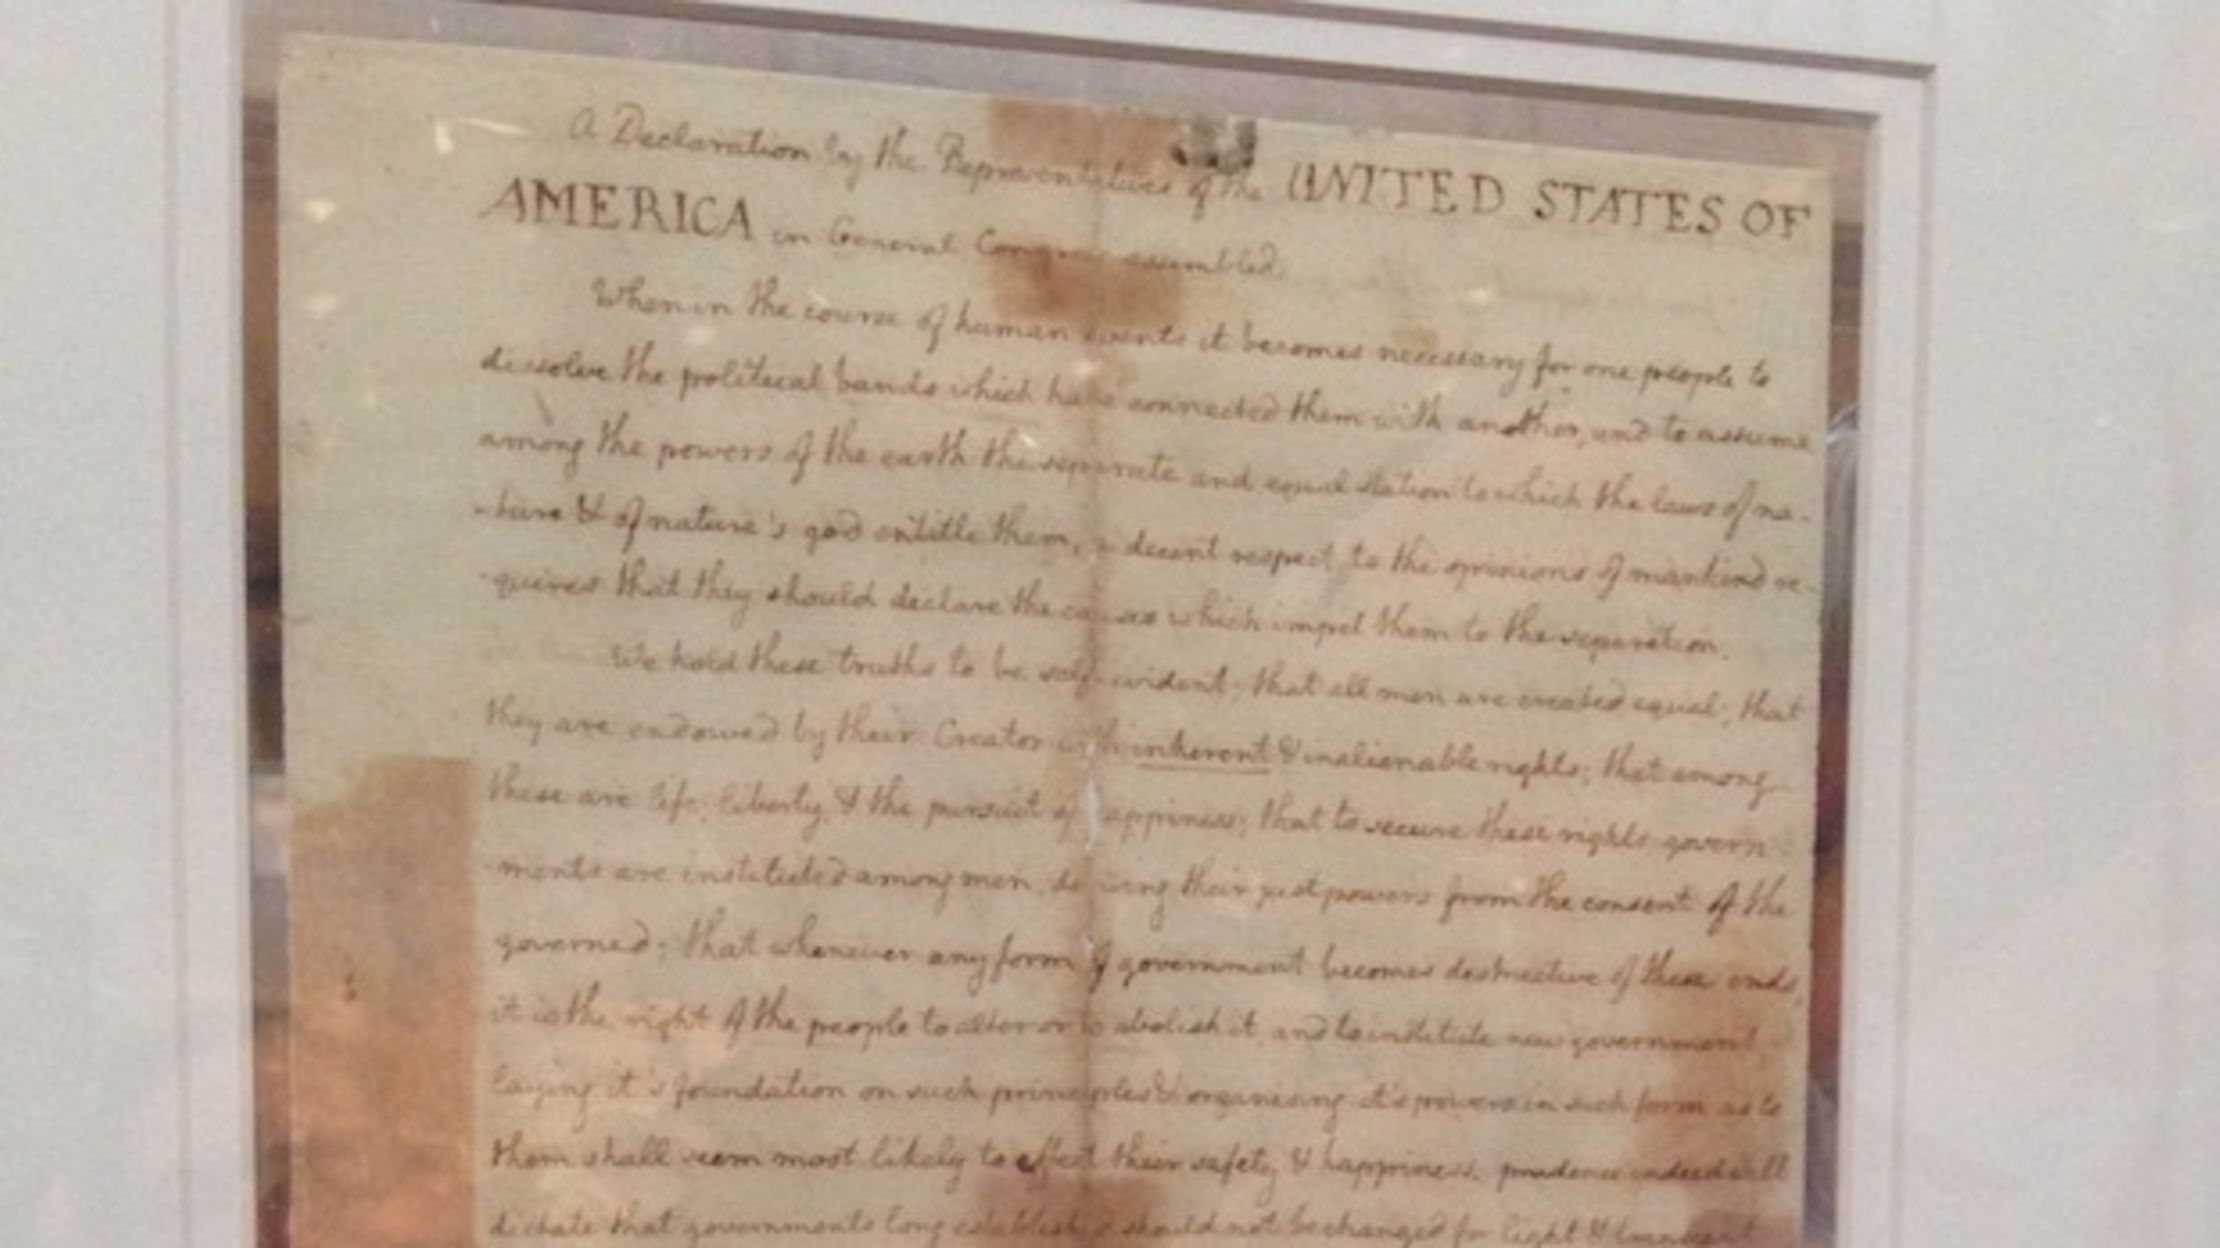 a Declaration by the Representatives of the UNITED STATES OF
AMERICA in General Congress assembled.
When in the course of human events it becomes necessary for one people to
dissolve the political bands which have connected them with another, and to assume
among the powers of the earth the separate and equal station to which the laws of na-
-ture & of nature's god entitle them, a decent respect to the opinions of mankind re-
-quires that they should declare the causes which impel them to the separation.
We hold these truths to be self-evident; that all men are created equal; that
they are endowed by their Creator with inherent & inalienable rights; that among
these are life, liberty, & the pursuit of happiness; that to secure these rights, govern-
-ments are instituted among men, deriving their just powers from the consent of the
governed; that whenever any form of government becomes destructive of these ends,
it is the right of the people to alter or to abolish it, and to institute new government,
laying it's foundation on such principles & organising it's powers in such form as to
them shall seem most likely to effect their safety & happiness. prudence indeed will
dictate that governments long established should not be changed for light & transient